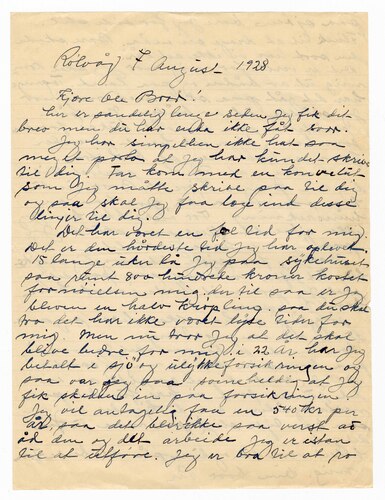 Rolvåg 7 August 1928
Kjære Ole Bror!
Her er sandelig lenge siden Jeg fik dit
brev men du har enda ikke fåt svar.
Jeg har simpelthen ikke hat saa
meget porto at Jeg har kundet skrive
til dig. Far kom med en konvolut
som Jeg måtte skrive paa til dig
og saa skal Jeg faa lag ind disse
linger til dig.
Det har været en fæl tid for mig.
Det er den hårdeste tid Jeg har oplevet
15 lange uker lå Jeg paa sykehuset
saa rundt 800 hundrede kroner kostet
fornøielsen mig, du til saa er Jeg
bleven en halv krøpling, saa du skal
tro det har ikke været lyse tider for
mig. Men nu tror Jeg at det skal
blive bedre for mig, i 22 år har Jeg
betalt i sjø og ulykkeforsikringen og
saa var Jeg saa vinneheldig at Jeg
fik skikken en paa forsikringen
Jeg vil antagelig faa en 540 kr per
år, saa det blir ikke saa verst at
åd den og det arbeide Jeg er istan
til at utføre. Jeg er bra til at ro